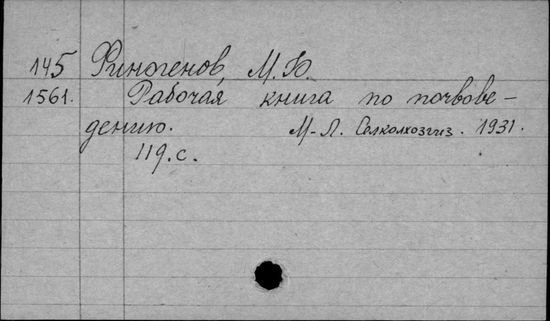 145 Финогенов, М.
1561. Рабочая книга по почвове-
дению. М-Л. Селколхозгиз. 1931.
119.с.